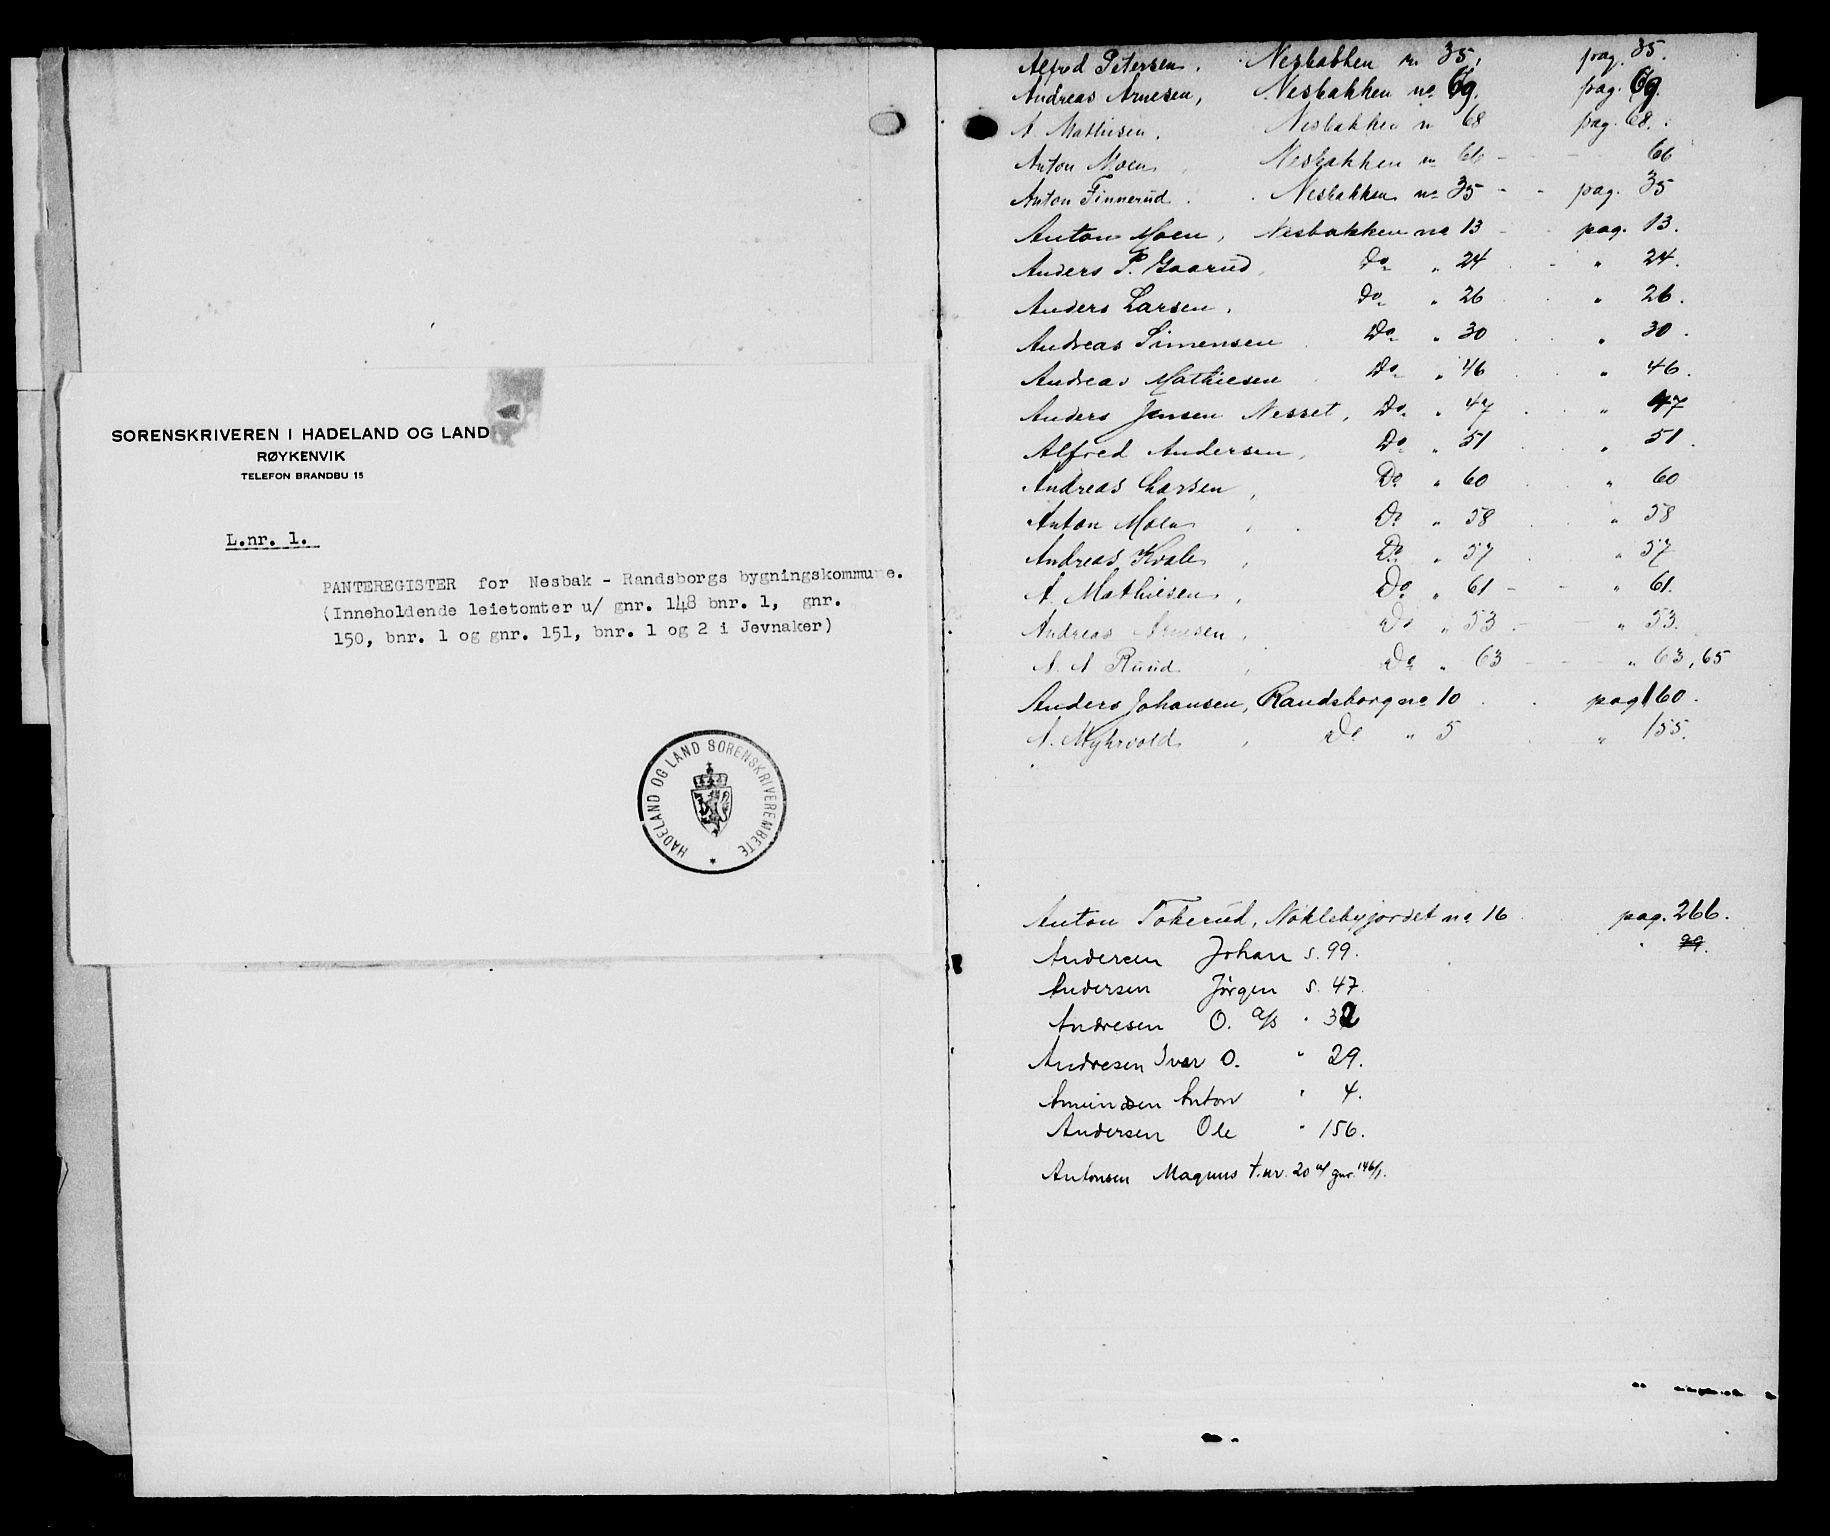 SORENSKRIVEREN I HADELAND OG LAND
RØYKENVIK
TELEFON BRANDBU 15
L.nr. 1.
PANTEREGISTER for Nesbak - Randsborgs bygningskommune.
(Inneholdende leietomter u/ gnr. 148 bnr. 1, gnr.
150, bnr. 1 og gnr. 151, bnr. 1 og 2 i Jevnaker)
HADELAND OG LAND SORENSKRIVEREMBETE *
Alfred Petersen. Nesbakken no 35, pag. 35.
Andreas Arnesen, Nesbakken no 69. pag. 69.
A. Mathiesen. Nesbakken no 68 pag. 68.
Anton Moen, Nesbakken no 66 - - 66
Anton Finnerud. Nesbakken no 35 - - pag. 35
Anton Moen, Nesbakken no 13 - pag. 13.
Anders P. Gaarud, Do " 24 - " 24.
Anders Larsen, Do " 26 " 26.
Andreas Simensen Do " 30 " 30.
Andreas Mathiesen Do " 46 " 46.
Anders Jensen Nesset, Do " 47 " 47
Alfred Andersen, Do " 51 " 51.
Andreas Larsen, Do " 60 " 60
Anton Moen, Do " 58 " 58
Andreas Kvale, Do " 57 " 57
A. Mathiesen, Do " 61 - " 61.
Andreas Arnesen, Do " 53 - - " 53.
A. A. Ruud, Do " 63 - - " 63, 65
Anders Johansen, Randsborg no 10 pag 160.
A. Myhrvold, Do " 5 " 155.
Anton Tokerud, Nøklebyjordet no 16 pag. 266.
Andersen Johan s. 99. " 99.
Andersen Jørgen s. 47.
Andresen O. A/S " 32
Andresen Ivar O. " 29.
Amundsen Anton " 4.
Andersen Ole " 156.
Antonsen Magnus t.nr. 20 u/ gnr. 146/1.